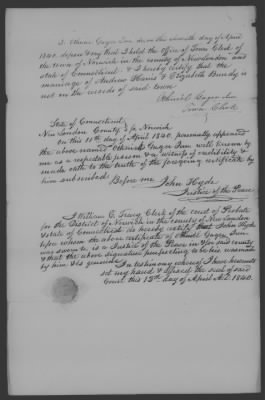 I Othniel Gager Jun. do on this eleventh day of April
1840, depose and say that I hold the office of Town Clerk of
the town of Norwich in the county of New London and
state of Connecticut & I hereby certify that the
marriage of Andrew Harris & Elizabeth Bundy is
not on the records of said town
Othniel Gager Jun.
Town Clerk
State of Connecticut
New London County Norwich
on this 11th day of April 1840. personally appeared
the above named Othniel Gager Jun well known by
me as a respectable person & a witness of credibility &
made oath to the truth of the foregoing certificate by
him subscribed.
Before me John Hyde
Justice of the Peace
I William C. Clerk of the court of Probate
for the District of Norwich in the county of New London
& State of Connecticut do hereby certify that John Hyde
before whom the above certificate of Othniel Gager Jun
was sworn to is a Justice of the Peace in & for said county
& that the above signature purporting to be his was made
by him & is genuine.
In testimony whereof I have hereunto
set my hand & affixed the seal of said
Court this 13th day of April A.D. 1840.